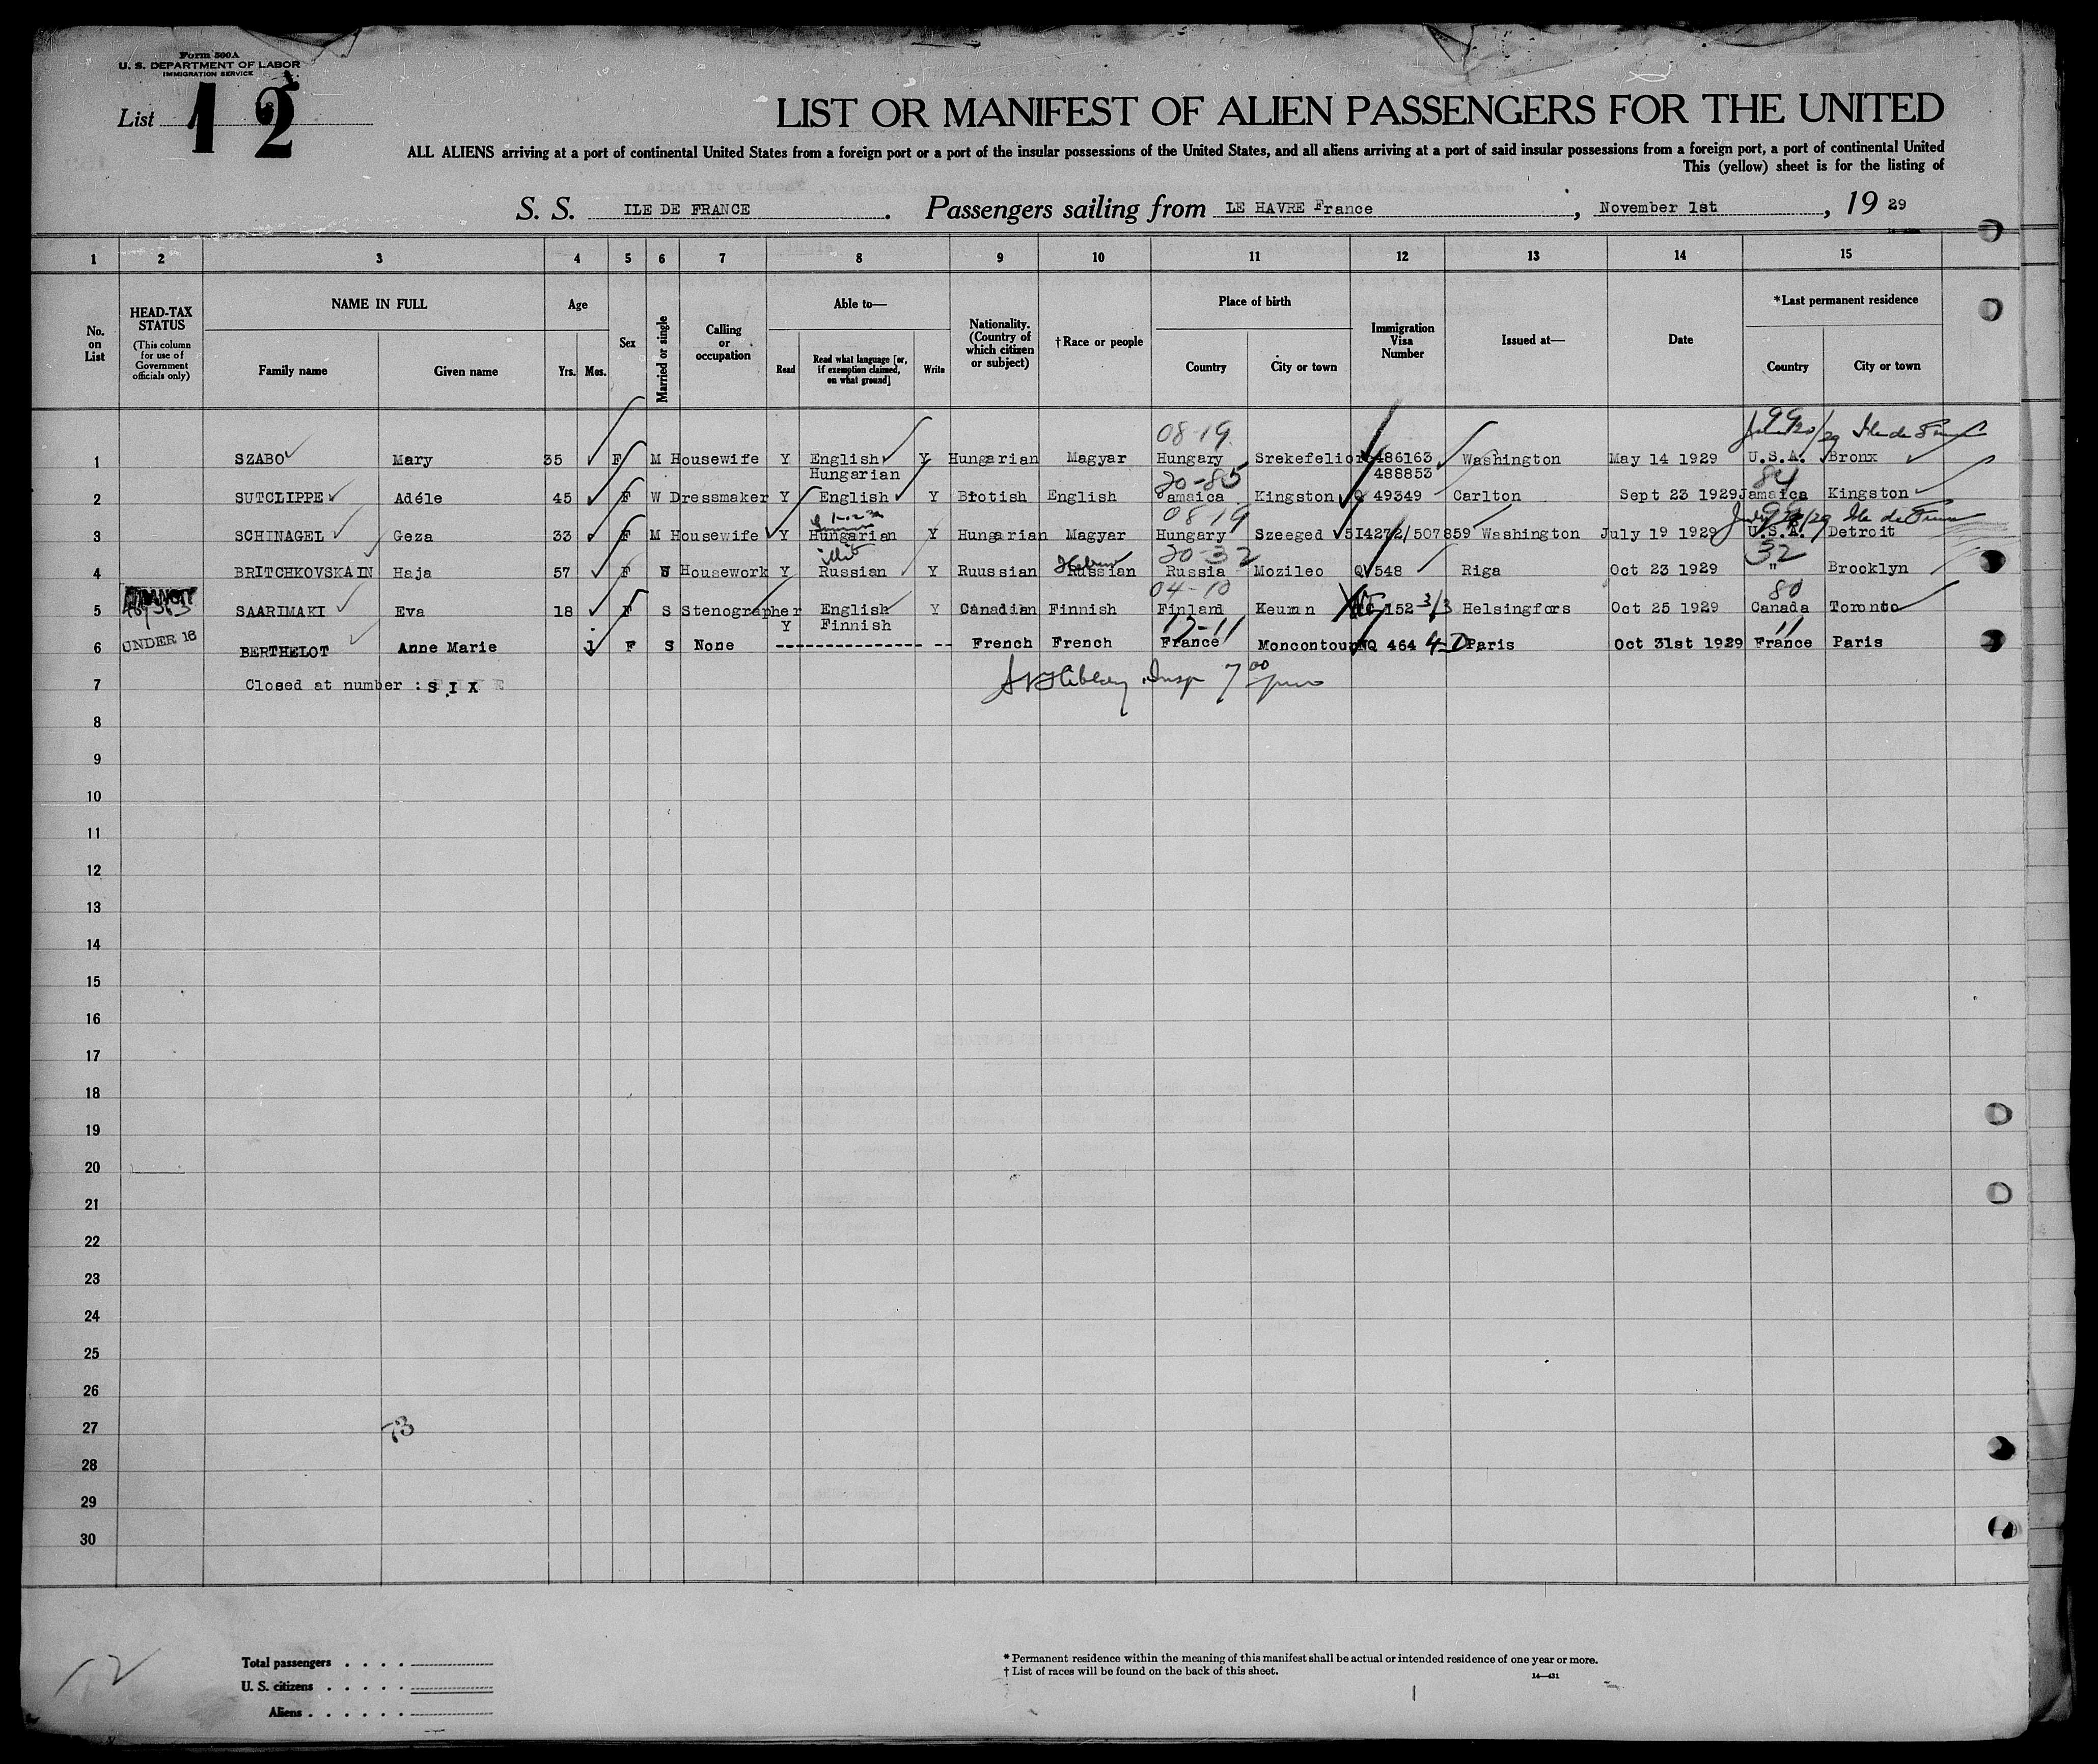 Form 500A
U. S. DEPARTMENT OF LABOR
IMMIGRATION SERVICE
List 12
LIST OR MANIFEST OF ALIEN PASSENGERS FOR THE UNITED
ALL ALIENS arriving at a port of continental United States from a foreign port or a port of the insular possessions of the United States, and all aliens arriving at a port of said insular possessions from a foreign port, a port of continental United
This (yellow) sheet is for the listing of
S. S. ILE DE FRANCE. Passengers sailing from LE HAVRE France, November 1st, 19 29
1 2 3 4 5 6 7 8 9 10 11 12 13 14 15
No. on List
HEAD-TAX STATUS
(This column for use of Government officials only)
NAME IN FULL
Family name Given name
Age
Yrs. Mos.
Sex
Married or single
Calling or occupation
Able to—
Read Read what language [or, if exemption claimed, on what ground] Write
Nationality. (Country of which citizen or subject)
†Race or people
Place of birth
Country City or town
Immigration Visa Number
Issued at—
Date
*Last permanent residence
Country City or town
08-19 99 Ile de
1 SZABO Mary 35 F M Housewife Y English Y Hungarian Magyar Hungary 486163 Washington May 14 1929 U.S.A. Bronx
Hungarian 488853
20-85 84
2 SUTCLIPPE Adéle 45 F W Dressmaker Y English Y Brotish English Jamaica Kingston Q 49349 Carlton Sept 23 1929 Jamaica Kingston
0819 99 Ile de
3 SCHINAGEL Geza 33 F M Housewife Y Hungarian Y Hungarian Magyar Hungary Szeeged 514272/507859 Washington July 19 1929 U.S.A. Detroit
Hebrew 20-32 32
4 BRITCHKOVSKAIN Haja 57 F Housework Y Russian Y Ruussian Russian Russia Mozileo Q 548 Riga Oct 23 1929 " Brooklyn
TRANSIT 04-10 80
5 SAARIMAKI Eva 18 F S Stenographer English Y Canadian Finnish Finland Keumn 152 3/3 Helsingfors Oct 25 1929 Canada Toronto
Y Finnish
UNDER 16 11
6 BERTHELOT Anne Marie 1 F S None French French France Moncontour NQ 464 Paris Oct 31st 1929 France Paris
7 Closed at number : SIX Insp 7 00
8
9
10
11
12
13
14
15
16
17
18
19
20
21
22
23
24
25
26
27
73
28
29
30
12
Total passengers
U. S. citizens
Aliens
* Permanent residence within the meaning of this manifest shall be actual or intended residence of one year or more.
† List of races will be found on the back of this sheet.
14—431